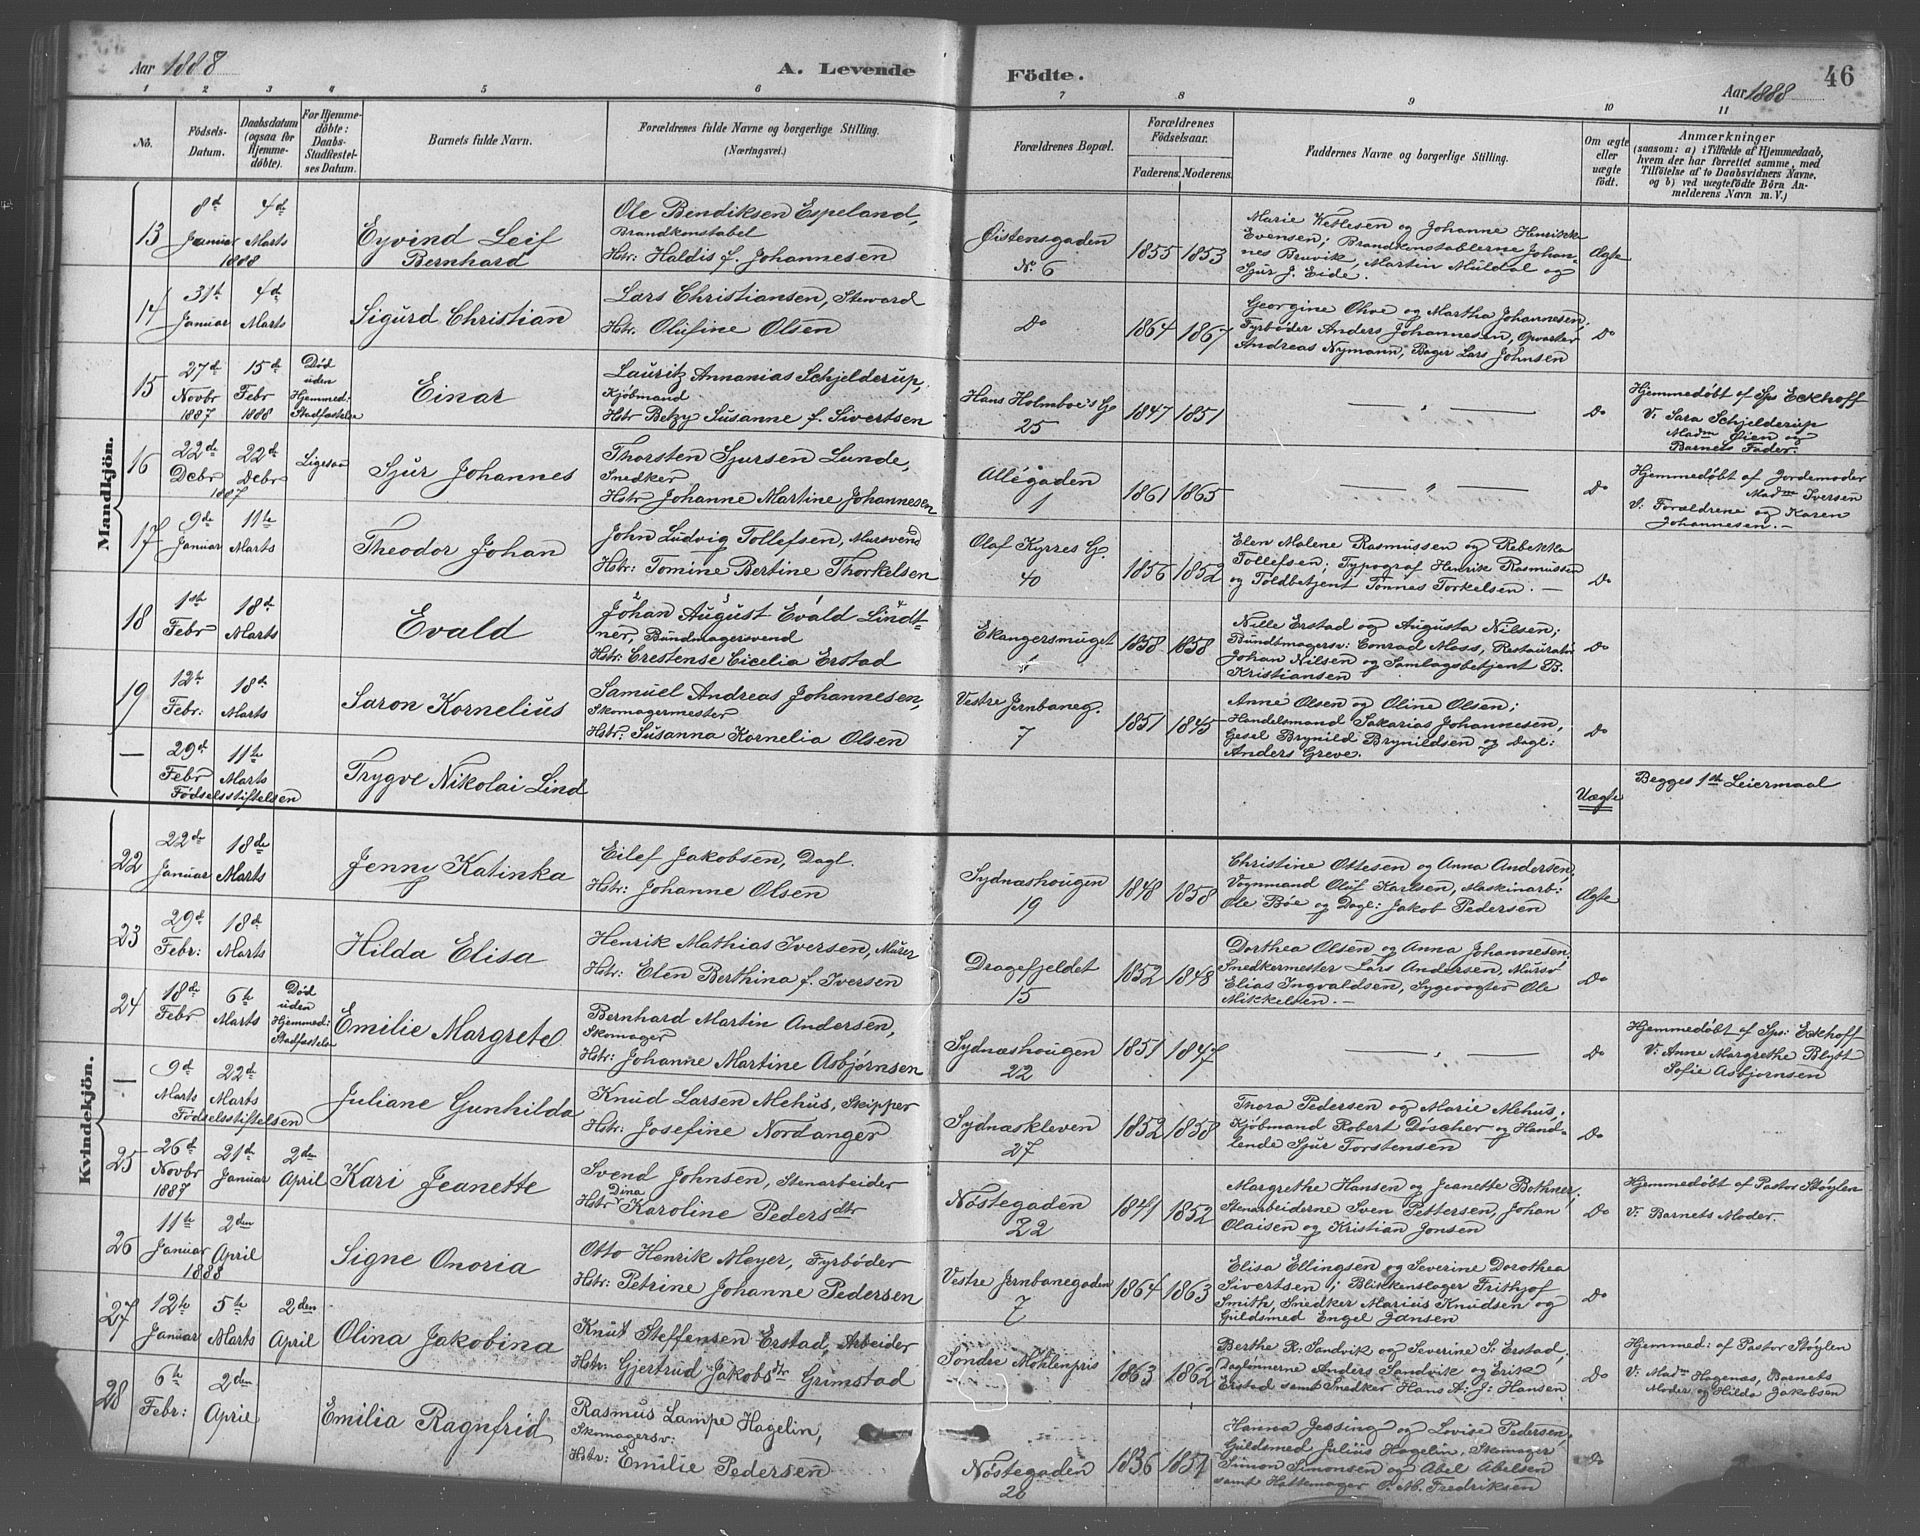 Aar 1888
A. Levende
Födte.
Aar 1888
46
1 2 3 4 5 6 7 8 9 10 11
No.
Födsels-Datum.
Daabsdatum (ogsaa for Hjemmedöbte).
For Hjemmedöbte: Daabs-Stadfæstelses Datum.
Barnets fulde Navn.
Forældrenes fulde Navne og borgerlige Stilling.
(Næringsvei.)
Forældrenes Bopæl.
Forældrenes Födselsaar.
Faderens.
Moderens.
Faddernes Navne og borgerlige Stilling.
Om ægte eller uægte født.
Anmærkninger
(saasom: a) i Tilfælde af Hjemmedaab, hvem der har forrettet samme, med Tilföielse af to Daabsvidners Navne, og b) ved uægtefödte Börn Anmelderens Navn m. V.)
Mandkjön.
13
8d Januar 1888
4d Marts
Eyvind Leif Bernhard
Ole Bendiksen Espeland,
Brandkonstabel
Hstr: Haldis f. Johannesen
Øistensgaden
No 6
1855
1853
Marie Ketlesen og Johanne Henrikke
Evensen; Brandkonstablerne Johan-
nes Bruvik, Martin Muldal og
Sjur J. Eide.
Ægte
14
31te Januar
4d Marts
Sigurd Christian
Lars Christiansen, Steward
Hstr. Olufine Olsen
Do
1864
1867
Georgine Ohve og Martha Johannesen;
Fyrbøder Anders Johannesen, Opvarter
Andreas Nymann, Bager Lars Johnsen
Do
15
27d Novbr 1887
15d Febr 1888
Død uden Hjemmed: Stadfæstelse
Einar
Lauritz Annanias Schjelderup,
Kjøbmand
Hstr Betzy Susanne f. Sivertsen
Hans Holmboe's G.
25
1847
1851
— " —
Do
Hjemmedøbt af Sps Eckhoff
V: Sara Schjelderup
Madm Øien og
Barnets Fader.
16
22de Debr 1887
22de Debr
Ligesaa
Sjur Johannes
Thorsten Sjursen Lunde,
Snedker
Hstr Johanne Martine Johannesen
Allégaden
1
1861
1865
— " —
Do
Hjemmedøbt af Jordemoder
Madm Iversen
V: Forældrene og Karen
Johannesen.—
17
9de Januar
11te Marts
Theodor Johan
John Ludvig Tollefsen, Mursvend
Hstr: Tomine Bertine Thorkelsen
Olaf Kyrres G.
40
1856
1852
Elen Malene Rasmussen og Rebekka
Tollefsen; Typograf Henrik Rasmussen
og Toldbetjent Tønnes Torkelsen. —
Do
18
1ste Febr
18d Marts
Evald
Johan August Evald Lindt-
ner, Bundmagersvend
Hstr: Crestense Cicelia Erstad
Ekangersmuget
1858
1858
Nille Erstad og Augusta Nilsen;
Bundtmagersv: Conrad Moss, Restauratør
Johan Nilsen og Samlagsbetjent B.
Kristiansen
Do
19
12te Febr:
18d Marts
Saron Kornelius
Samuel Andreas Johannesen,
Skomagermester
Hstr: Susanna Kornelia Olsen
Vestre Jernbaneg.
7
1851
1845
Anne Olsen og Oline Olsen;
Handelsmand Sakarias Johannesen,
Gesel Brynild Brynildsen og Dagl:
Anders Greve.
Do
—
29d Febr
11te Marts
Fødselsstiftelsen
Trygve Nikolai Lind
Uægte
Begges 1ste Leiermaal
Kvindekjön.
22
22de Januar
18de Marts
Jenny Katinka
Eilef Jakobsen, Dagl.
Hstr: Johanne Olsen
Sydnæshougen
19
1848
1858
Christine Ottesen og Anna Andersen;
Vognmand Oluf Karlsen, Maskinarb:
Ole Bøe og Dagl: Jakob Pedersen
Ægte
23
29d Febr:
18d Marts
Hilda Elisa
Henrik Mathias Iversen, Murer
Hstr: Elen Berthina f. Iversen
Dragefjeldet
15
1852
1848
Dorthea Olsen og Anna Johannesen;
Snedkermester Lars Andersen, Mursv
Elias Ingvaldsen, Sygevogter Ole
Mikkelsen.—
Do
24
18de Febr
6te Marts
Død uden Hjemmed: Stadfæstelse
Emilie Margrete
Bernhard Martin Andersen,
Skomager
Hstr: Johanne Martine Asbjørnsen
Sydnæshougen
22
1851
1847
— " —
Do
Hjemmedøbt af Sps: Eckhoff
V: Anne Margrethe Blytt
Sofie Asbjørnsen
—
9d Marts
22de Marts
Fødselsstiftelsen
Juliane Gunhilda
Knud Larsen Mehus, Skipper
Hstr: Josefine Nordanger
Sydnæskleven
27
1852
1858
Thora Pedersen og Marie Mehus;
Kjøbmand Robert Døscher og Hand-
lende Sjur Torstensen
Do
25
26d Novbr 1887
21de Januar
2den April
Kari Jeanette
Svend Johnsen, Stenarbeider
Hstr Dina Karoline Pedersdtr
Nøstegaden
32
1841
1852
Margrethe Hansen og Jeanette Bothner;
Stenarbeiderne Sven Pettersen, Johan
Olaisen og Kristian Jonsen
Do
Hjemmedøbt af Pastor Støylen
V: Barnets Moder.
26
11te Januar 1888
2den April
Signe Onoria
Otto Henrik Meyer, Fyrbøder
Hstr: Petrine Johanne Pedersen
Vestre Jernbanegaden
7
1864
1863
Elisa Ellingsen og Severine Dorothea
Sivertsen; Blikkenslager Frithjof
Smith, Snedker Marius Knudsen og
Guldsmed Engel Jansen
Do
27
12te Januar
5te Marts
2den April
Olina Jakobina
Knut Steffensen Erstad, Arbeider
Hstr: Gjertrud Jakobsdtr Grimstad
Søndre Møhlenpris
1863
1862
Berthe R. Sandvik og Severine S. Erstad;
Daglønnerne Anders Sandvik og Erik
Erstad samt Snedker Hans A. J. Hansen
Do
Hjemmed: af Pastor Støylen
V: Madm Hagenæs, Barnets
Moder og Hilda Jakobsen
28
6te Febr:
2den April
Emilia Ragnfrid
Rasmus Lampe Hagelin,
Skomagersv:
Hstr: Emilie Pedersen
Nøstegaden
20
1836
1857
Hanna Jessing og Lovise Pedersen;
Guldsmed Julius Hagelin, Skomager
Simon Simonsen og Abel Abelsen
samt Hattemager O. M. Fredriksen
Do